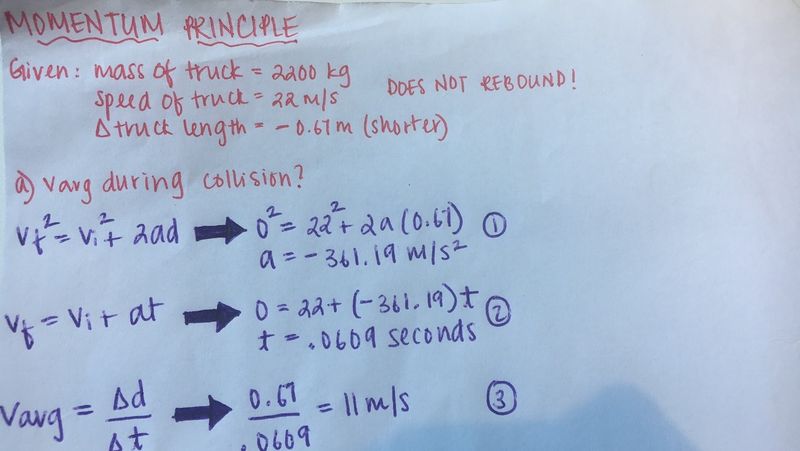 MOMENTUM PRINCIPLE
Given: mass of truck = 2200 kg
speed of truck = 22 m/s DOES NOT REBOUND!
Δ truck length = -0.67m (shorter)
a) Vavg during collision?
Vf² = Vi² + 2ad → 0² = 22² + 2a(0.67) ①
a = -361.19 m/s²
Vf = Vi + at → 0 = 22 + (-361.19)t ②
t = .0609 seconds
Vavg = Δd/Δt → 0.67/.0609 = 11 m/s ③